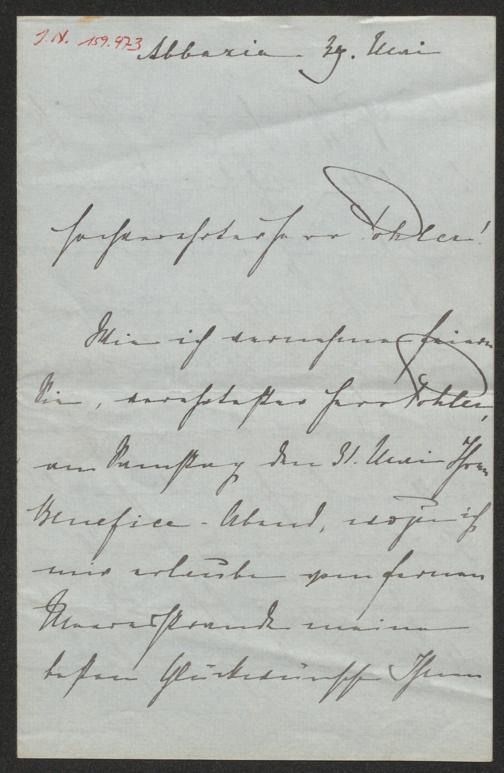 J.N. 159.473
Abbazia 29. Mai
Hochverehrter Herr Pohler!
Wie ich vernehme feiern
Sie, verehrtester Herr Pohler,
am Samstag den 31. Mai Ihren
Benefice-Abend, wozu ich
mir erlaube vom fernen
Meeresstrande meine
besten Glückwünsche Ihnen